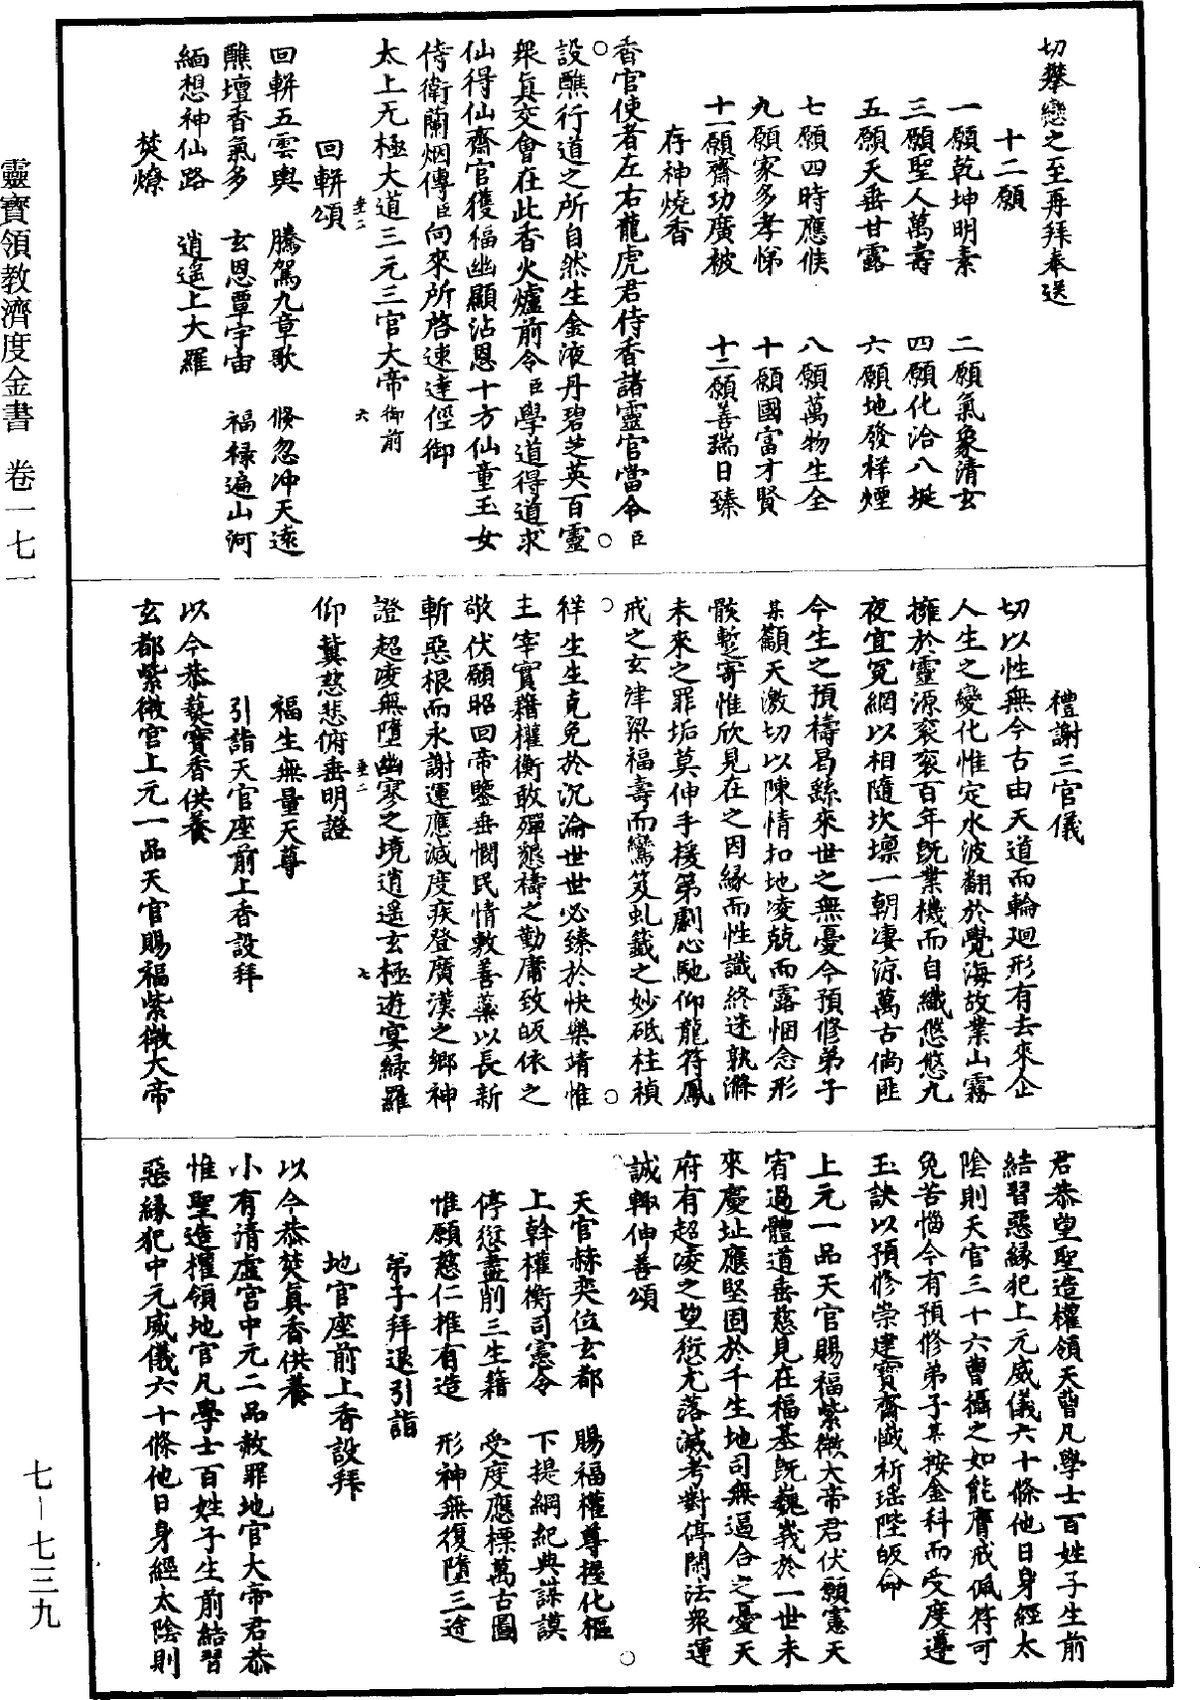 切攀戀之至再拜奉送
十二願
一願乾坤明素　二願氣象清玄
三願聖人萬壽　四願化洽八埏
五願天垂甘露　六願地發祥煙
七願四時應候　八願萬物生全
九願家多孝悌　十願國富才賢
十一願齋功廣被　十二願善瑞日臻
存神燒香
香官使者左右龍虎君侍香諸靈官當令臣
設醮行道之所自然生金液丹碧芝英百靈
衆眞交會在此香火爐前令臣學道得道求
仙得仙齋官獲福幽顯沾恩十方仙童玉女
侍衛蘭烟傳臣向來所啓速達徑御
太上无極大道三元三官大帝御前
回軿頌
回軿五雲輿　騰駕九章歌　倐忽冲天遠
醮壇香氣多　玄恩覃宇宙　福禄遍山河
緬想神仙路　逍遥上大羅
焚燎
禮謝三官儀
切以性無今古由天道而輪廻形有去來企
人生之變化惟定水波翻於覺海故業山霧
擁於靈源衮衮百年旣業機而自纖悠悠九
夜宜冤網以相隨坎壈一朝凄涼萬古倘匪
今生之預禱曷繇來世之無憂今預修弟子
某籲天激切以陳情扣地凌兢而露悃念形
骸蹔寄惟欣見在之因緣而性識終迷孰滌
未來之罪垢莫伸手援第劇心馳仰龍符鳳
戒之玄津梁福壽而鸞笈虬籖之妙砥柱禎
祥生生克免於沉淪世世必臻於快樂埥惟
主宰實藉權衡敢殫懇禱之勤庸致皈依之
敬伏願昭回帝鑒垂憫民情敷善藥以長新
斬惡根而永謝運應滅度疾登廣漢之鄉神
證超凌無墮幽寥之境逍遥玄極遊宴緑羅
仰冀慈悲俯垂明證
福生無量天尊
引詣天官座前上香設拜
以今恭爇寶香供養
玄都紫微宫上元一品天官賜福紫微大帝
君恭望聖造權領天曹凡學士百姓子生前
結習惡緣犯上元威儀六十條他日身經太
陰則天官三十六曹攝之如能膺戒佩符可
免苦惱今有預修弟子某按金科而受度遵
玉訣以預修崇建寶齋懴祈瑶陛皈命
上元一品天官賜福紫微大帝君伏願憲天
宥過體道垂慈見在福基旣巍峩於一世未
來慶址應堅固於千生地司無逼合之憂天
府有超凌之望愆尤落滅考對停閑法衆運
誠輙伸善頌
天官赫奕位玄都　賜福權尊握化樞
上幹權衡司憲令　下提綱紀典謀謨
停愆盡削三生籍　受度應標萬古圖
惟願慈仁推有造　形神無復墮三途
弟子拜退引詣
地官座前上香設拜
以今恭焚眞香供養
小有清虚宫中元二品赦罪地官大帝君恭
惟聖造權領地官凡學士百姓子生前結習
惡緣犯中元威儀六十條他日身經太陰則
靈寶領教濟度金書　卷一七一
七－七三九